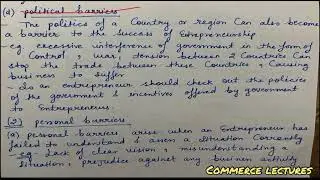 (d) political barriers
The politics of a Country or region can also become
a barrier to the success of Entrepreneurship
- eg. excessive interference of government in the form of
Control, war, tension between 2 Countries can
stop the trade between these Countries & Causing
business to suffer
- So an entrepreneur should check out the policies
of the government & incentives offered by government
to Entrepreneurs.
2) personal barriers
(a) personal barriers arise when an Entrepreneur has
failed to understand & assess a situation Correctly
- eg. Lack of clear vision, misunderstanding a
situation, prejudice against any business activity
COMMERCE LECTURES